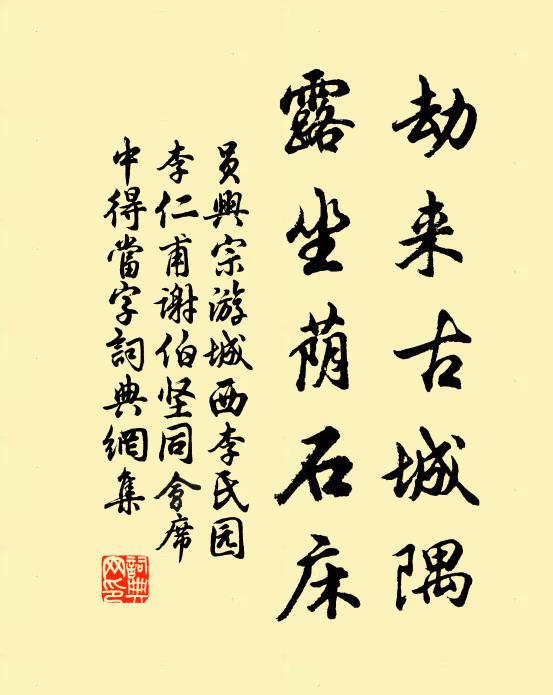 劫来古城隅
露坐荫石床
员興宗游城西李氏园
李仁甫谢伯坚同會席
中得當字詞典網集
詞典网印